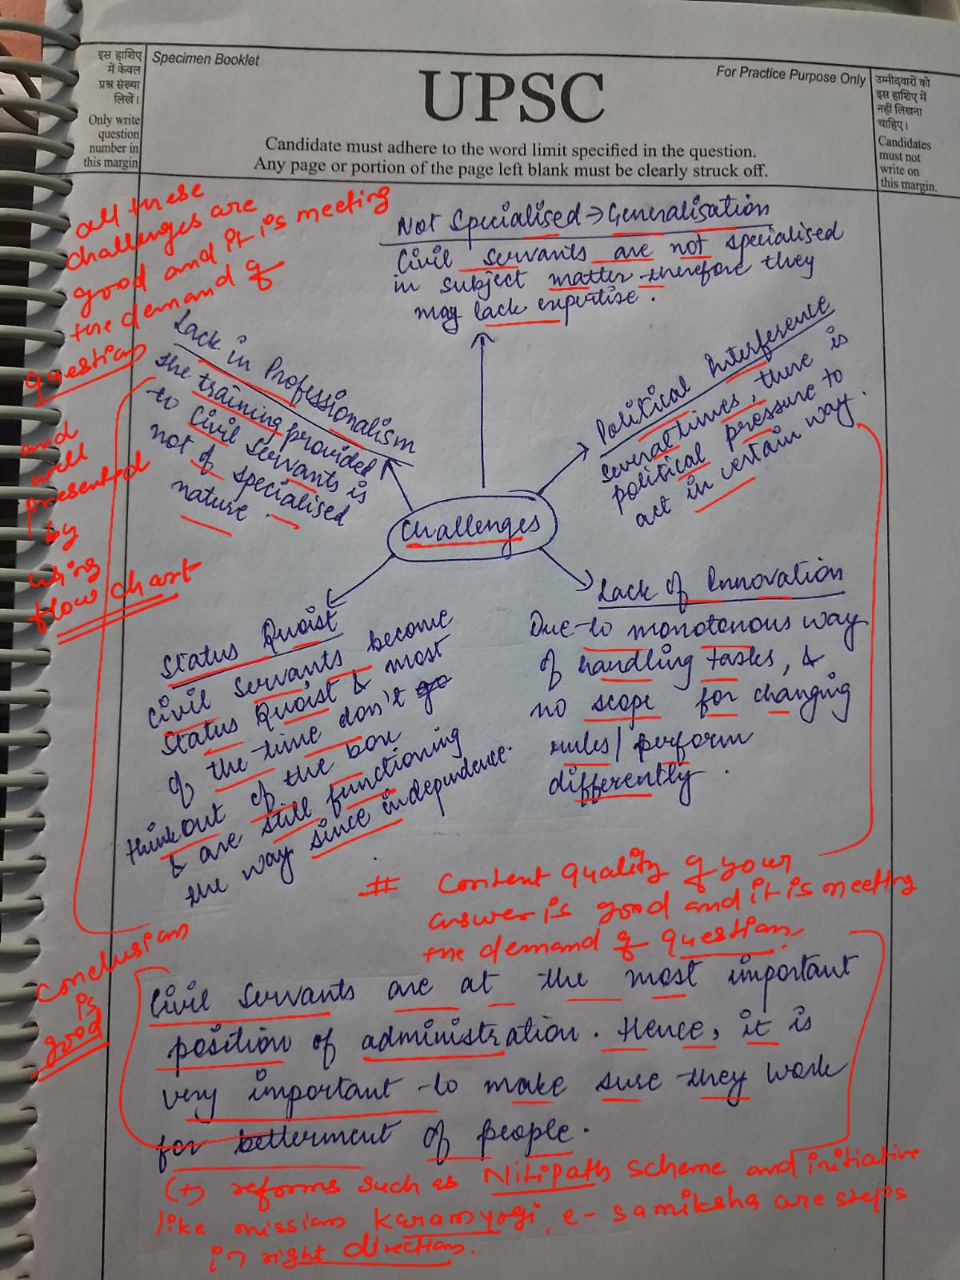 इस हाशिए
में केवल
प्रश्न संख्या
लिखें।
Only write
question
number in
this margin
Specimen Booklet
For Practice Purpose Only
UPSC
Candidate must adhere to the word limit specified in the question.
Any page or portion of the page left blank must be clearly struck off.
उम्मीदवारों को
इस हाशिए में
नहीं लिखना
चाहिए।
Candidates
must not
write on
this margin.
all these
challenges are
good and it is meeting
the demand of
question
and
will
presented
by
using
flow chart
Not Specialised → Generalisation
Civil servants are not specialised
in subject matter therefore they
may lack expertise.
Lack in Professionalism
the training provided
to Civil Servants is
not of specialised
nature.
Political Interference
Several times, there is
political pressure to
act in certain way.
Challenges
Status Quoist
Civil Servants become
Status Quoist & most
of the time don't go
think out of the box
& are still functioning
the way since independence.
Lack of Innovation
Due to monotenous way
of handling tasks, &
no scope for changing
rules/perform
differently.
# Content quality of your
answer is good and it is meeting
the demand of question
Conclusion
is
good
Civil Servants are at the most important
position of administration. Hence, it is
very important to make sure they work
for betterment of people.
(+) reforms such as Nitipath scheme and initiative
like mission Karamyogi, e-samiksha are steps
in right direction.